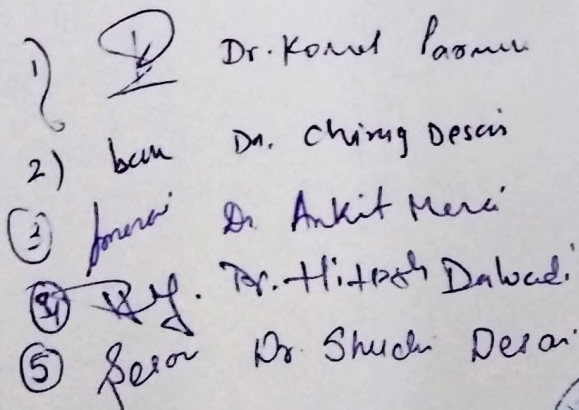 1) Dr. Komal Parmar
2) Dr. Chirag Desai
3 Dr Ankit Merai
4 Dr. Hitesh Dalwadi
5 Desai Dr Shuchi Desai